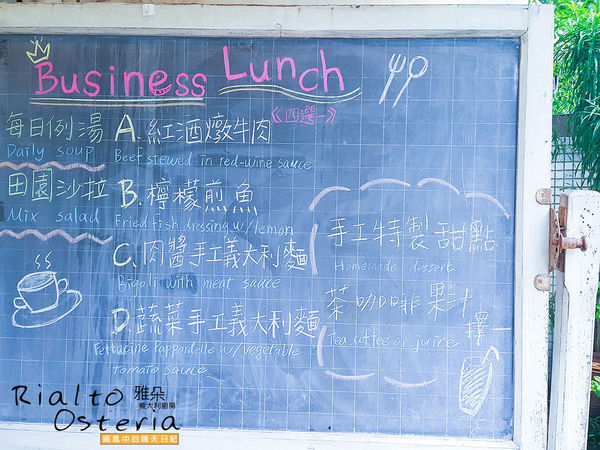 Business Lunch
《四選一》
每日例湯
Daily soup
田園沙拉
Mix salad
A. 紅酒燉牛肉
Beef stewed in red-wine sauce
B. 檸檬煎魚
Fried fish dressing w/lemon
C. 肉醬手工義大利麵
Bigoli with meat sauce
D. 蔬菜手工義大利麵
Fettucine Pappardelle w/vegetable
tomato sauce
手工特製甜點
Homemade dessert
茶咖啡果汁
擇一
Tea.coffee or juice
Rialto 雅朵
義大利廚房
Osteria
曉風中的晴天日記